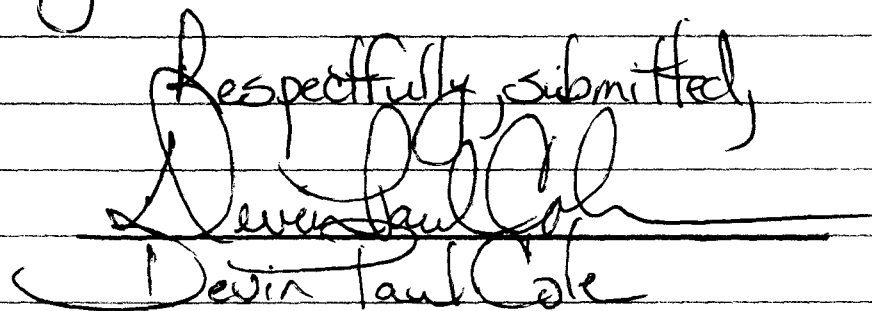 Respectfully, submitted,
Devin Paul Cole
Devin Paul Cole